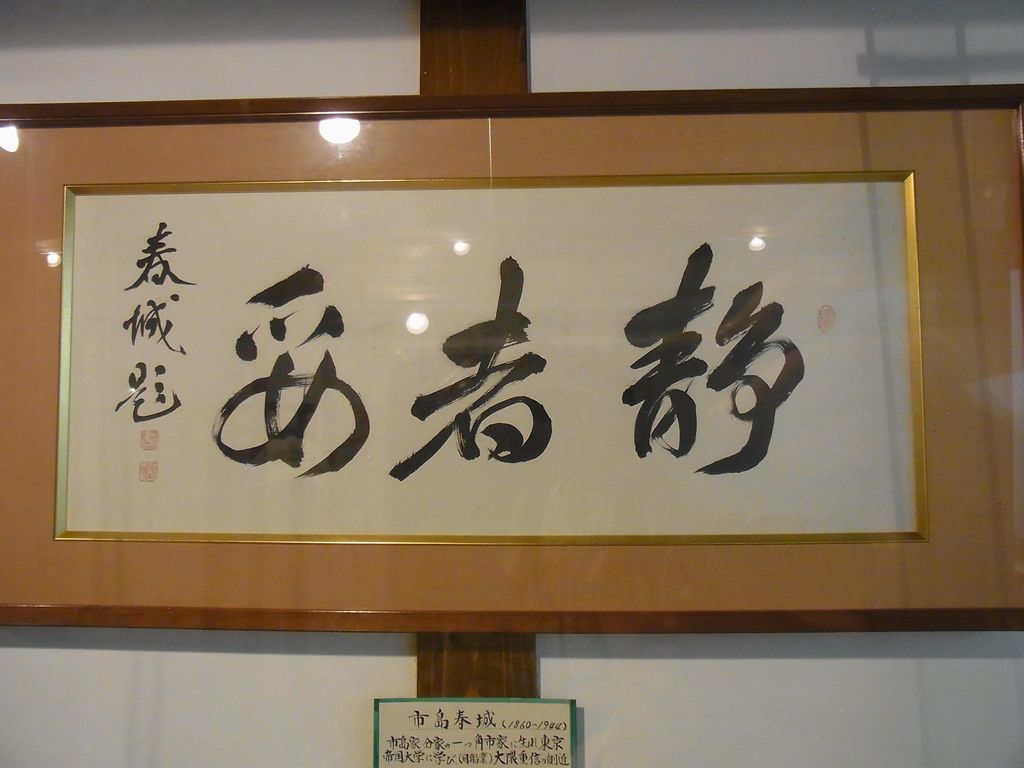 静者妥
春城題
市島春城(1860~1944)
市島家分家の一つ角市家に生れ東京
帝国大学に学び(同船業)大隈重信の側近